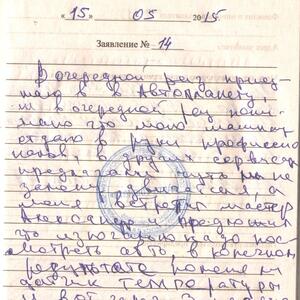 «15» 05 2015
Заявление № 14
В очередной раз приез-
жаю в Автопланету,
и в очередной раз пони-
маю что мою машину
отдаю в руки професио
налов, в других сервисах
предлагали чуть ли не
замену двигателя а
меня встретил мастер
Александр и предложил
что изначально надо пос
мотреть, в конечном
результате поменяли
датчик температуры
и вот